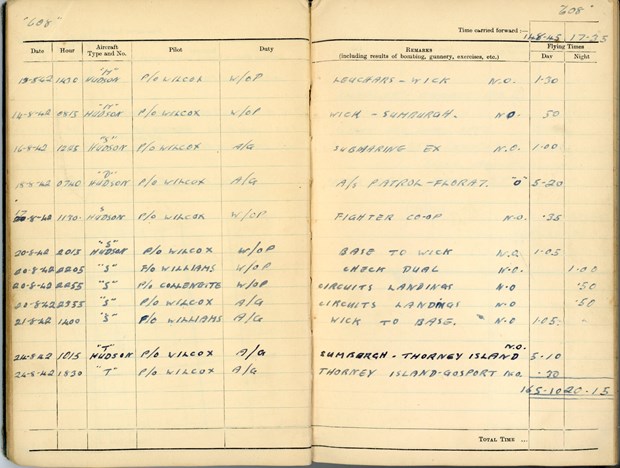 "608"
"608"
Time carried forward :— 148-45 17-25
Date Hour Aircraft Type and No. Pilot Duty Remarks (including results of bombing, gunnery, exercises, etc.) Flying Times Day Night
13-8-42 1430 "M" HUDSON P/O WILCOX W/OP LEUCHARS - WICK N.O. 1-30
14-8-42 0815 "M" HUDSON P/O WILCOX W/OP WICK - SUMBURGH. N.O. 50
16-8-42 1225 "S" HUDSON P/O WILCOX A/G SUBMARINE EX N.O. 1-00
18-8-42 0740 HUDSON P/O WILCOX A/G A/S PATROL - FLORAT. "O" 5-20
-8-42 S HUDSON P/O WILCOX W/OP FIGHTER CO-OP N.O. .35
20-8-42 2015 "S" HUDSON P/O WILCOX W/OP BASE TO WICK N.O. 1-05
20-8-42 2205 "S" P/O WILLIAMS W/OP CHECK DUAL N.O. 1-00
20-8-42 2255 "S" P/O W/OP CIRCUITS LANDINGS N.O .50
20-8-42 2355 "S" P/O WILCOX A/G CIRCUITS LANDINGS N.O .50
21-8-42 1400 "S" P/O WILLIAMS A/G WICK TO BASE. N.O. 1-05
24-8-42 1015 "T" HUDSON P/O WILCOX A/G SUMBERGH - THORNEY ISLAND N.O. 5-10
24-8-42 1830 "T" P/O WILCOX A/G THORNEY ISLAND-GOSPORT N.O. .20
165-10 20-15
Total Time ...